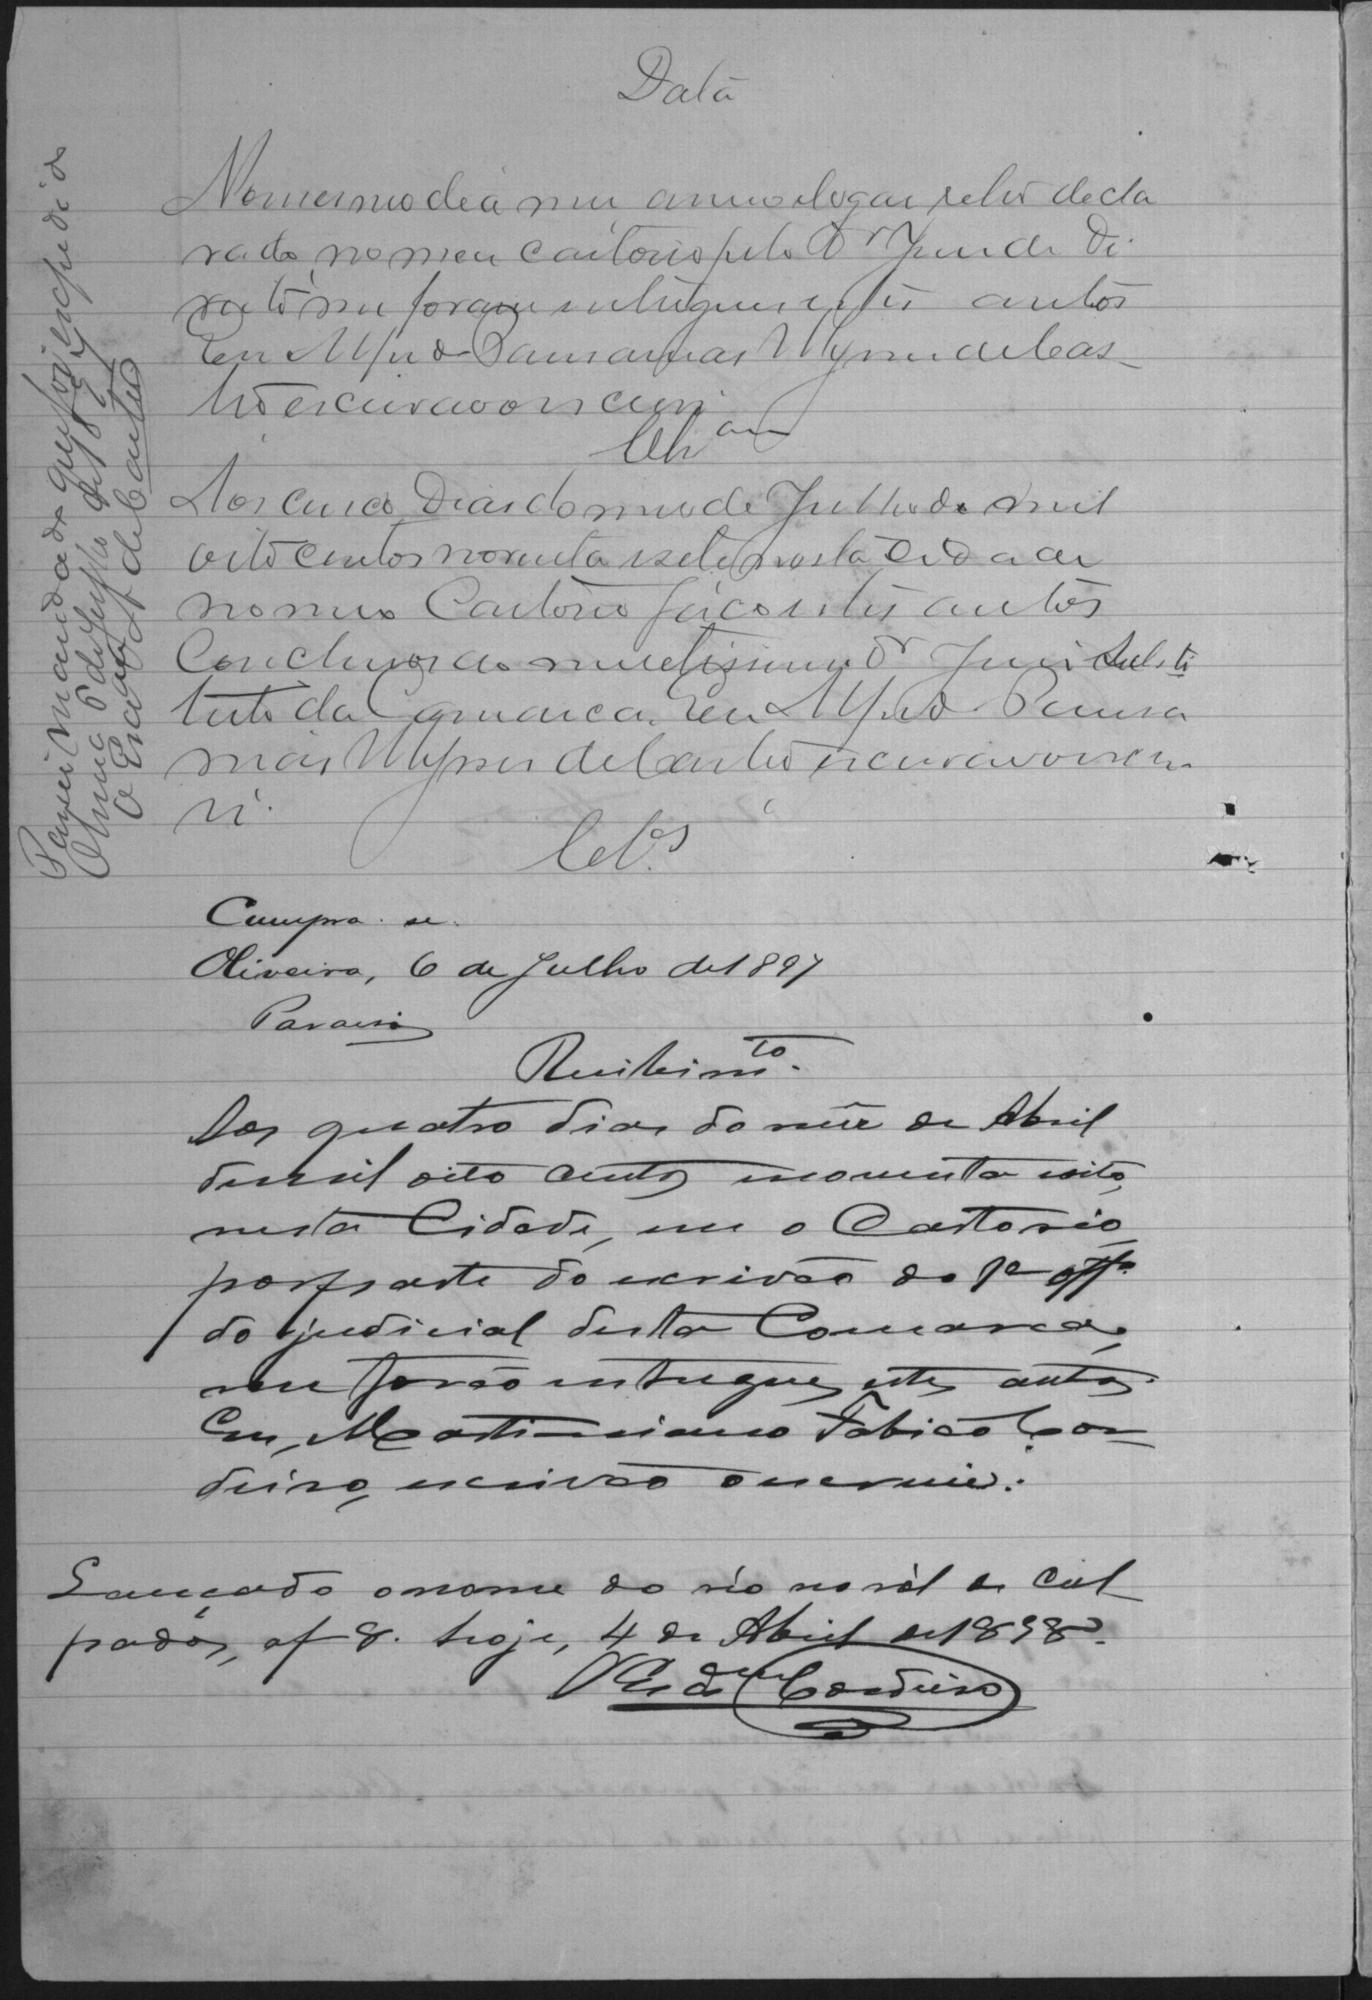 Data
No mesmo dia mez anno e logar retro decla
rado, no meu cartorio pelo Dr Juiz de Di
reito me foram entregues estes autos
Eu
tro escrivão o escrevi
Clsam
Aos cinco dias do mez de Julho de mil
oito centos noventa e sete nesta cidade
no meu Cartorio faço estes autos
Conclusos ao meretissimo Dr Juiz Substi
tuto da Comarca. Eu
de Castro escrivão o escre
vi.
Cls.
Cumpra-se.
Oliveira, 6 de Julho de 1897
Paraiso
Recebimto.
Aos quatro dias do mez de Abril
de mil oito centos e noventa e oito,
nesta Cidade, em o Cartorio,
por parte do escrivão do 1º offo.
do judicial desta Comarca,
me forão entregues estes autos.
Eu, Martiniano Fabião Cor
deiro, escrivão o escrevi.
Lançado o nome do réo no ról de cul
pados, af 8. hoje, 4 de Abril de 1898.
Cordeiro
Passei mandado que foi expedido
6 de Julho de 1897
O Escrivão de Castro